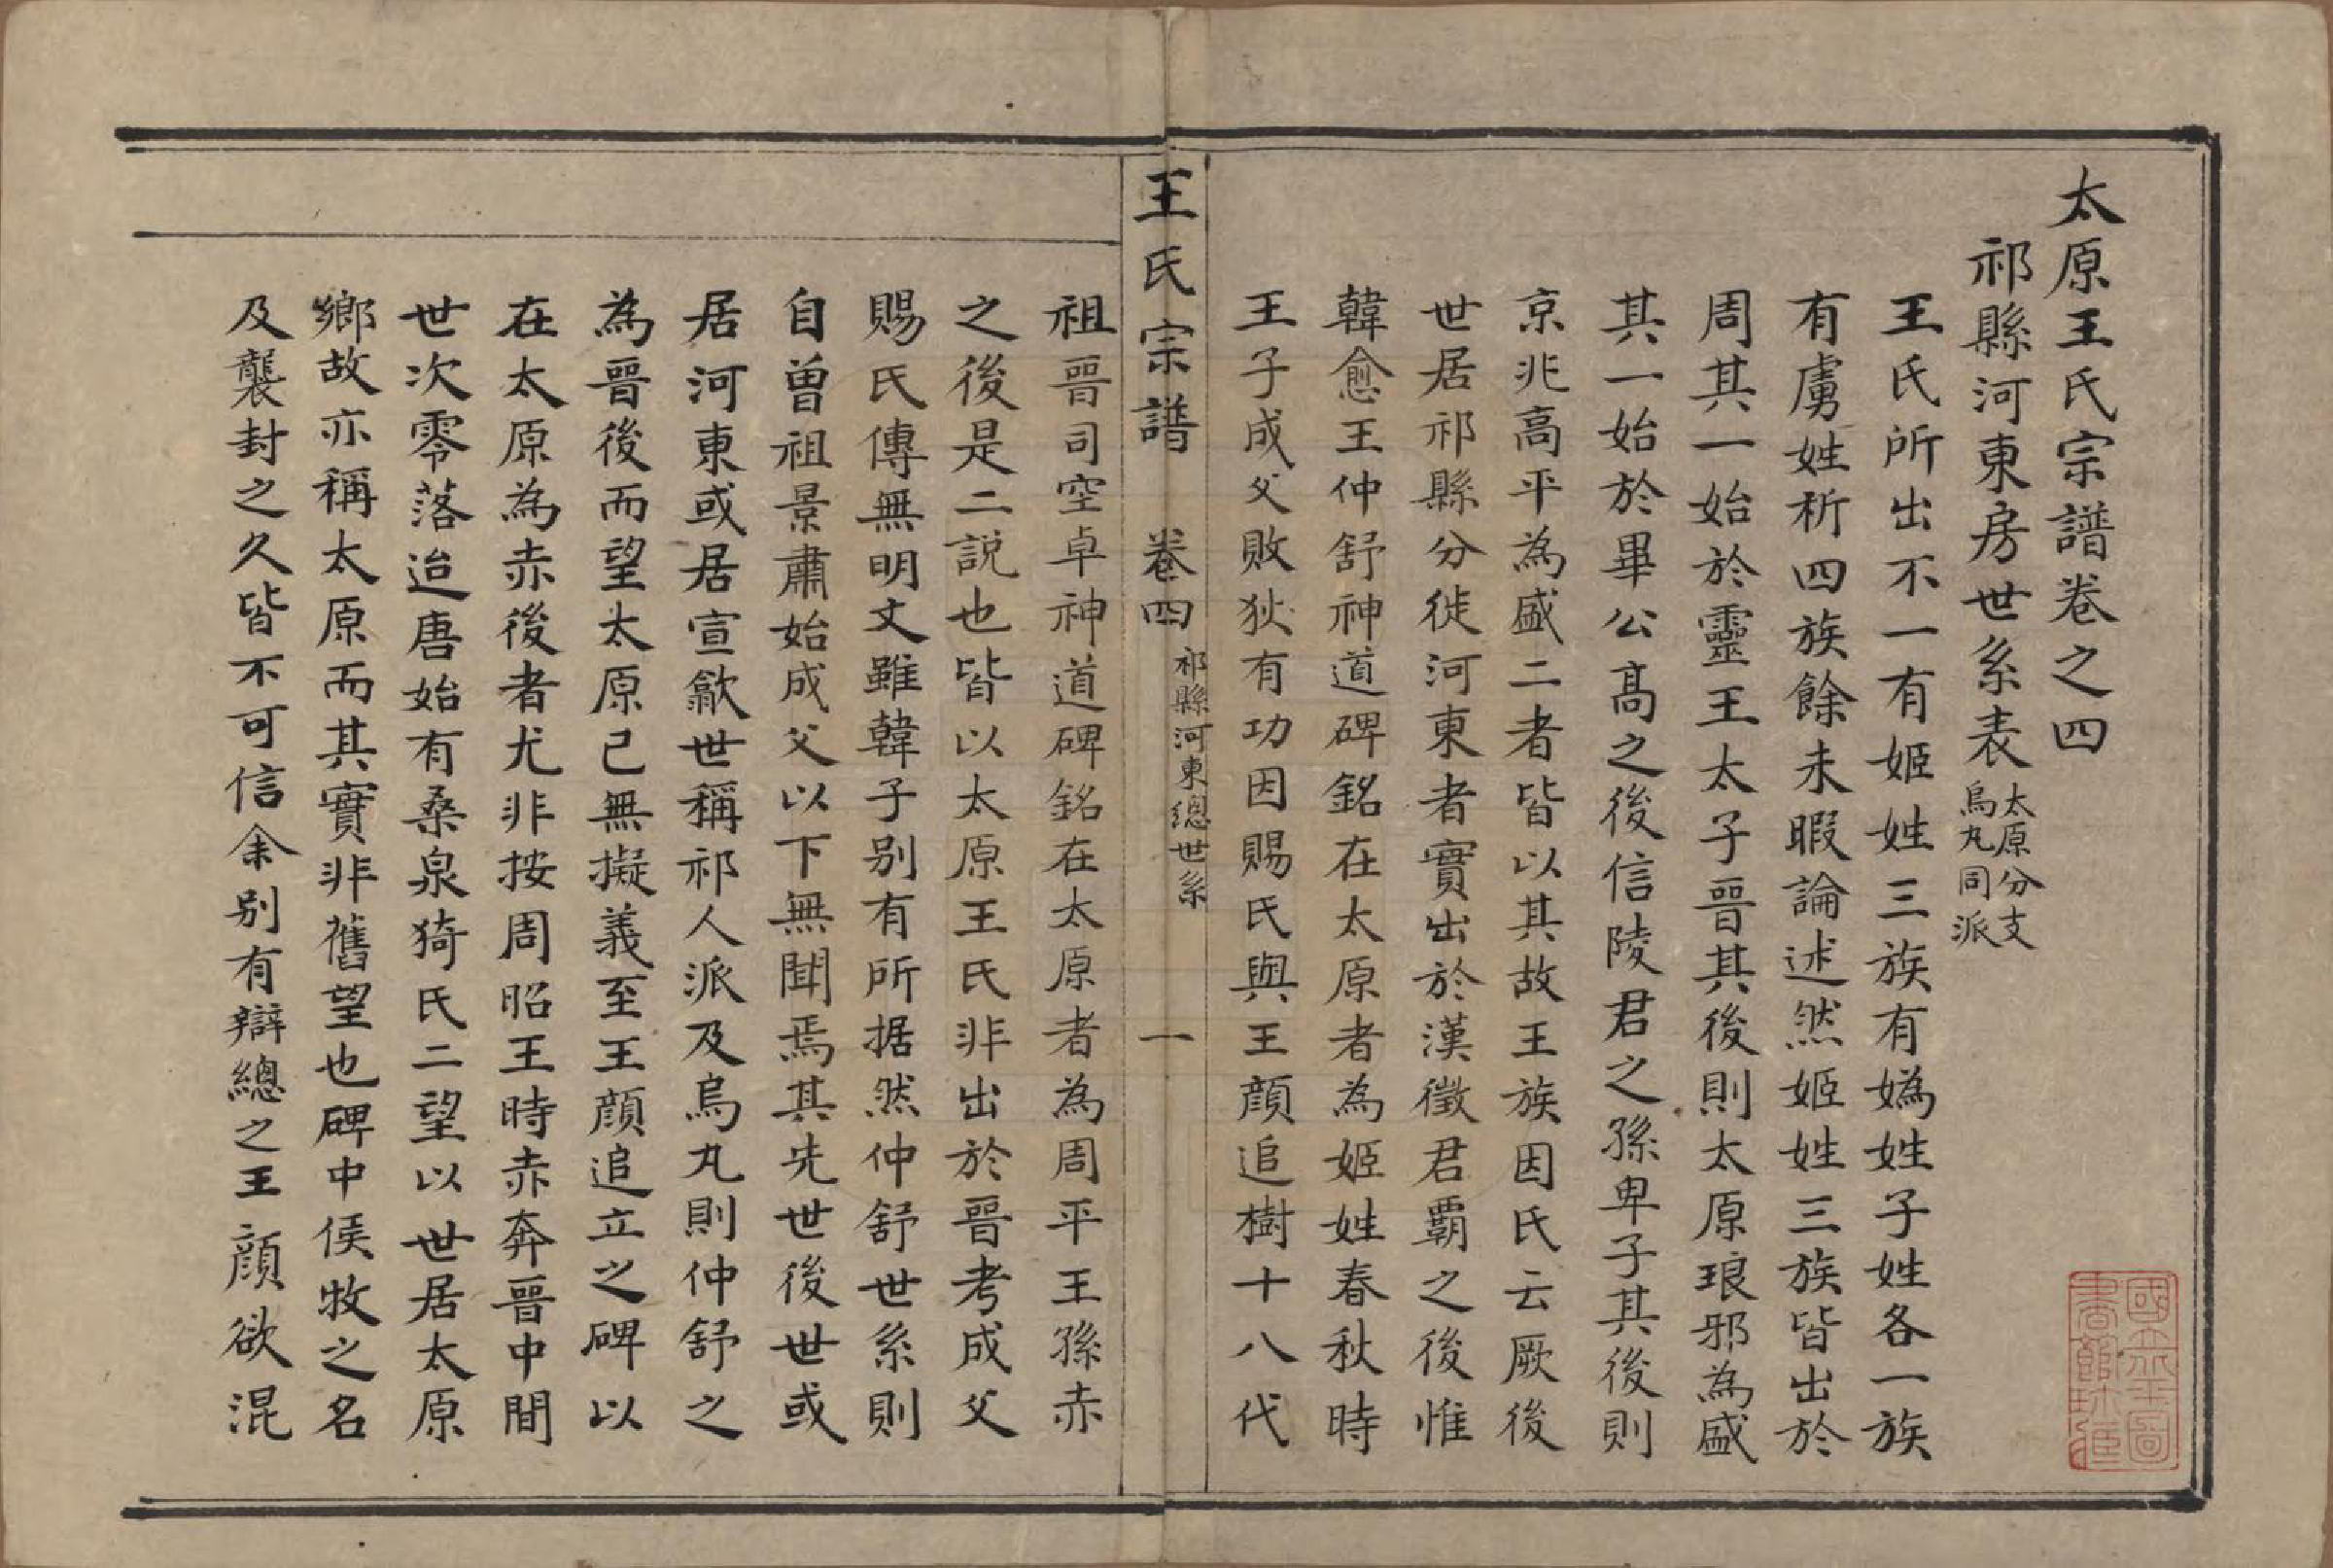 太原王氏宗譜卷之四
祁縣河東房世系表
太原分支
烏丸同派
王氏所出不一有姬姓三族有媯姓子姓各一族
有虞姓析四族餘未暇論述然姬姓三族皆出於
周其一始於靈王太子晉其後則太原琅邪為盛
其一始於畢公高之後信陵君之孫卑子其後則
京兆高平為盛二者皆以其故王族因氏云厥後
世居祁縣分徙河東者實出於漢徵君霸之後惟
韓愈王仲舒神道碑銘在太原者為姬姓春秋時
王子成父敗狄有功因賜氏與王顏追樹十八代
王氏宗譜 卷四 祁縣河東總世系 一
祖晉司空卓神道碑銘在太原者為周平王孫赤
之後是二說也皆以太原王氏非出於晉考成父
賜氏傳無明文雖韓子別有所据然仲舒世系則
自曾祖景肅始成父以下無聞焉其先世後世或
居河東或居宣歙世稱祁人派及烏丸則仲舒之
為晉後而望太原已無擬義至王顏追立之碑以
在太原為赤後者尤非按周昭王時赤奔晉中間
世次零落迨唐始有桑泉猗氏二望以世居太原
鄉故亦稱太原而其實非舊望也碑中侯牧之名
及襲封之久皆不可信余別有辯總之王顏欲混
國立北平圖書館珍藏